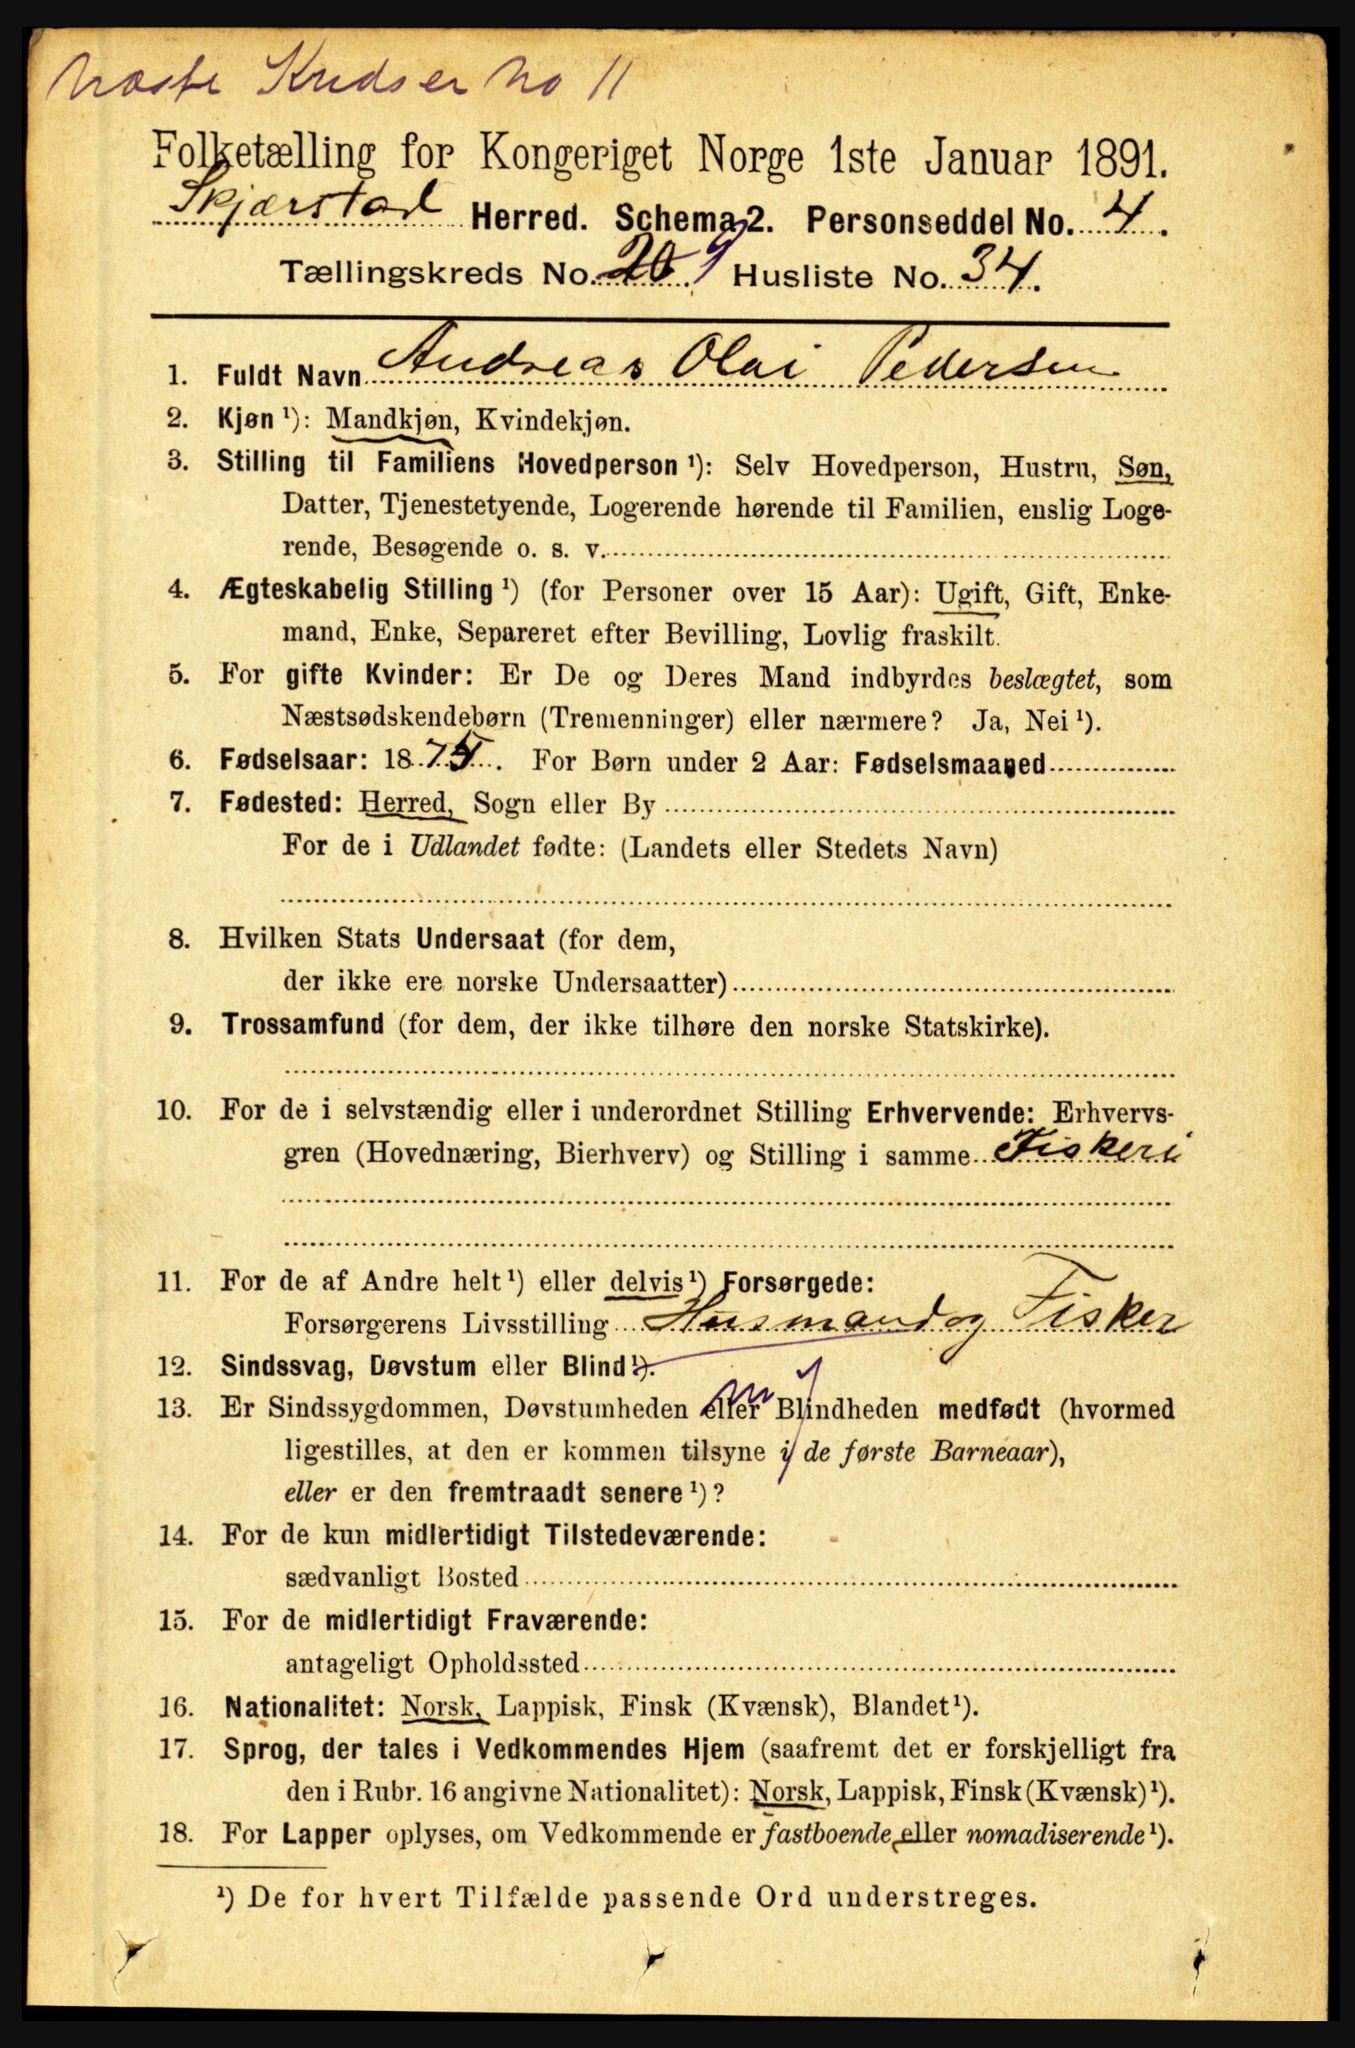 Næste Kredser no 11
Folketælling for Kongeriget Norge 1ste Januar 1891.
Skjærstad Herred. Schema 2. Personseddel No. 4.
Tællingskreds No. 20 9 Husliste No. 34.
1. Fuldt Navn Andreas Olai Pedersen
2. Kjøn ¹): Mandkjøn, Kvindekjøn.
3. Stilling til Familiens Hovedperson ¹): Selv Hovedperson, Hustru, Søn,
Datter, Tjenestetyende, Logerende hørende til Familien, enslig Loge-
rende, Besøgende o. s. v.
4. Ægteskabelig Stilling ¹) (for Personer over 15 Aar): Ugift, Gift, Enke-
mand, Enke, Separeret efter Bevilling, Lovlig fraskilt.
5. For gifte Kvinder: Er De og Deres Mand indbyrdes beslægtet, som
Næstsødskendebørn (Tremenninger) eller nærmere? Ja, Nei ¹).
6. Fødselsaar: 1875. For Børn under 2 Aar: Fødselsmaaned
7. Fødested: Herred, Sogn eller By
For de i Udlandet fødte: (Landets eller Stedets Navn)
8. Hvilken Stats Undersaat (for dem,
der ikke ere norske Undersaatter)
9. Trossamfund (for dem, der ikke tilhøre den norske Statskirke).
10. For de i selvstændig eller i underordnet Stilling Erhvervende: Erhvervs-
gren (Hovednæring, Bierhverv) og Stilling i samme Fiskeri
11. For de af Andre helt ¹) eller delvis ¹) Forsørgede:
Forsørgerens Livsstilling Husmand og Fisker
12. Sindssvag, Døvstum eller Blind ¹).
13. Er Sindssygdommen, Døvstumheden eller Blindheden medfødt (hvormed
ligestilles, at den er kommen tilsyne i de første Barneaar),
eller er den fremtraadt senere ¹)?
14. For de kun midlertidigt Tilstedeværende:
sædvanligt Bosted
15. For de midlertidigt Fraværende:
antageligt Opholdssted
16. Nationalitet: Norsk, Lappisk, Finsk (Kvænsk), Blandet ¹).
17. Sprog, der tales i Vedkommendes Hjem (saafremt det er forskjelligt fra
den i Rubr. 16 angivne Nationalitet): Norsk, Lappisk, Finsk (Kvænsk) ¹).
18. For Lapper oplyses, om Vedkommende er fastboende eller nomadiserende ¹).
¹) De for hvert Tilfælde passende Ord understreges.